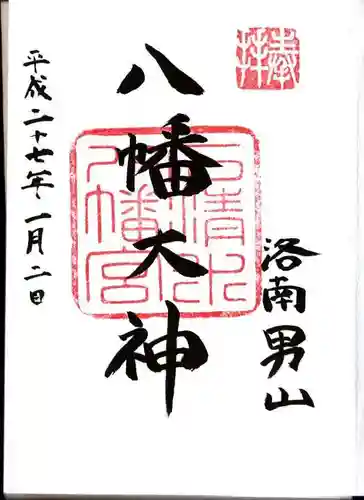 奉拝
洛南男山
八幡大神
石清水
八幡宮
平成二十七年一月二日